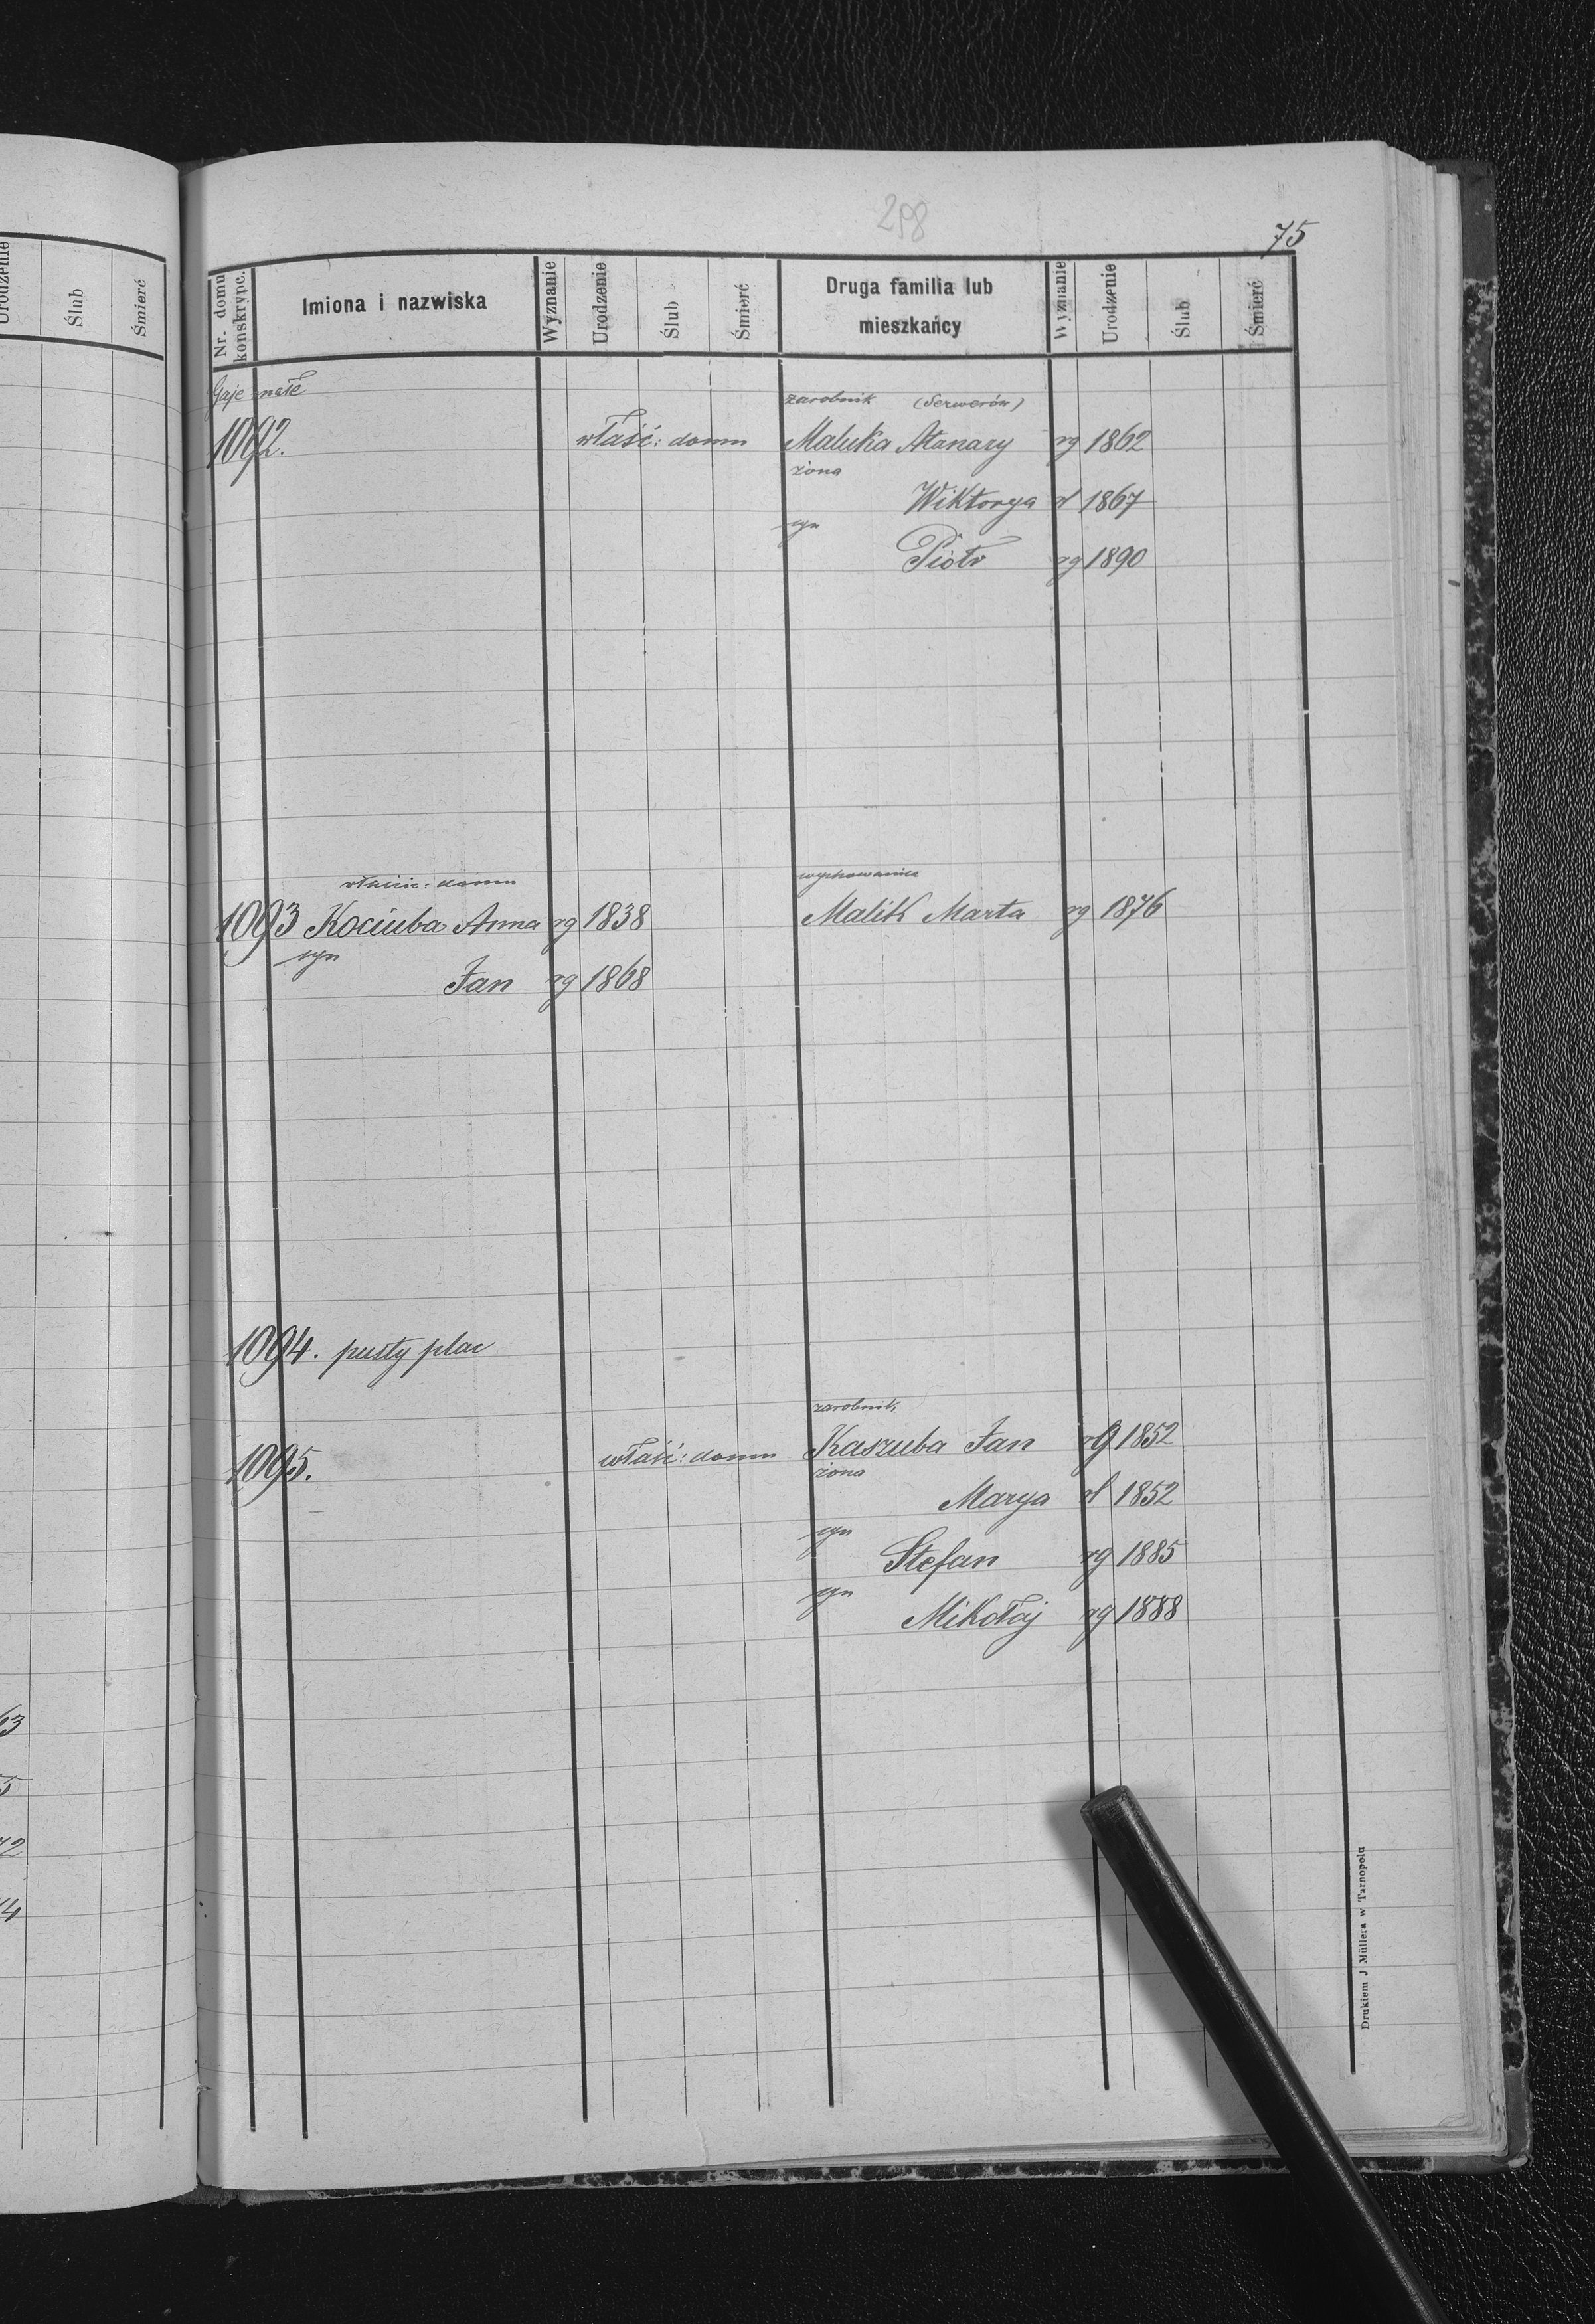 298
75
Urodzenie Ślub Śmierć
Nr. domu konskrypc. Imiona i nazwiska Wyznanie Urodzenie Ślub Śmierć Druga familia lub mieszkańcy Wyznanie Urodzenie Ślub Śmierć
Gaje małe
zarobnik (Serwerów)
1092. właść: domu Maluka Atanazy rg 1862
żona
Wiktorya rł 1867
syn
Piotr rg 1890
właścic: domu wychowanica
1093 Kociuba Anna rg 1838 Malik Marta rg 1876
syn
Jan rg 1868
1094. pusty plac
zarobnik
1095. właść: domu Kaszuba Jan rg 1852
żona
Marya rł 1852
syn
Stefan rg 1885
syn
Mikołaj rg 1888
63
5
72
14
Drukiem J Müllera w Tarnopolu